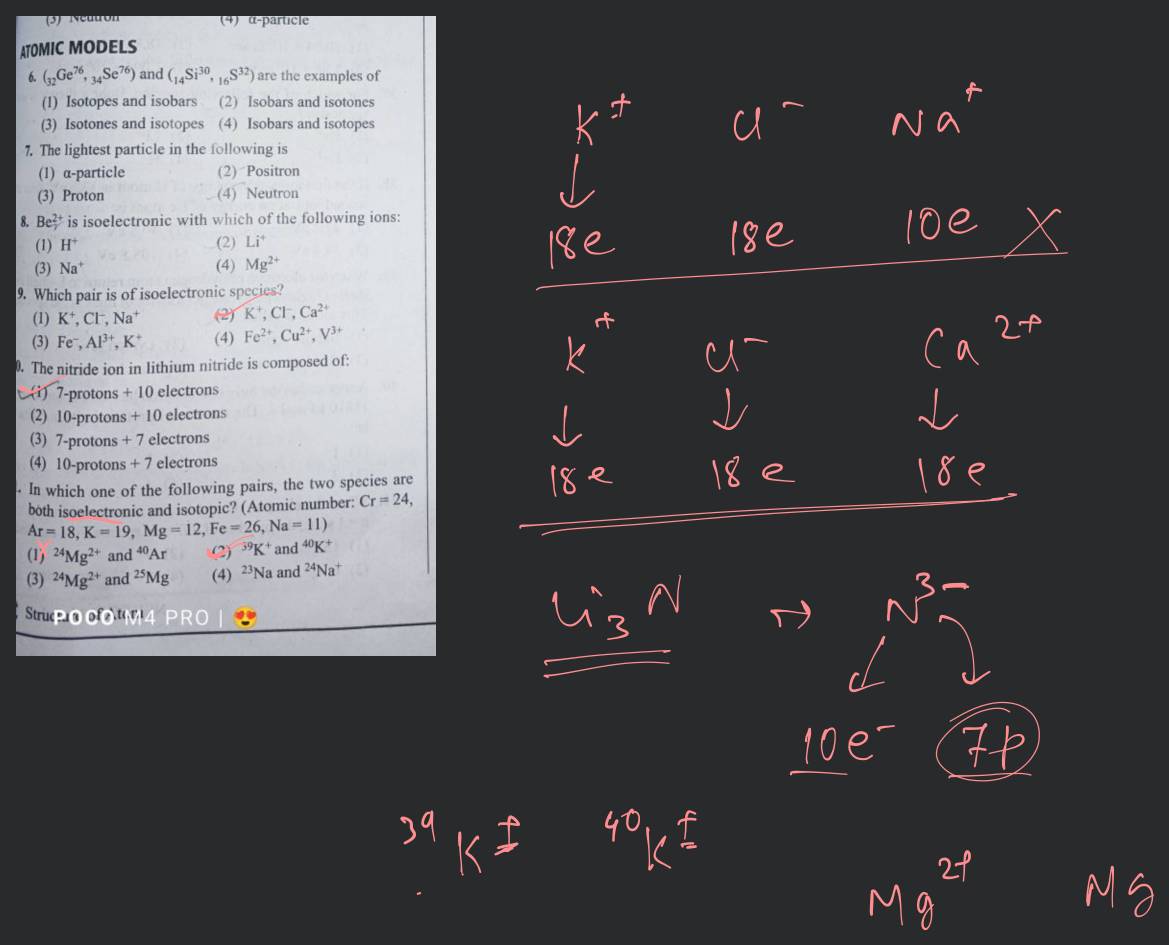 (3) Neutron (4) α-particle
ATOMIC MODELS
6. (₃₂Ge⁷⁶, ₃₄Se⁷⁶) and (₁₄Si³⁰, ₁₆S³²) are the examples of
(1) Isotopes and isobars (2) Isobars and isotones
(3) Isotones and isotopes (4) Isobars and isotopes
7. The lightest particle in the following is
(1) α-particle (2) Positron
(3) Proton (4) Neutron
8. Be²⁺ is isoelectronic with which of the following ions:
(1) H⁺ (2) Li⁺
(3) Na⁺ (4) Mg²⁺
9. Which pair is of isoelectronic species?
(1) K⁺, Cl⁻, Na⁺ (2) K⁺, Cl⁻, Ca²⁺
(3) Fe⁻, Al³⁺, K⁺ (4) Fe²⁺, Cu²⁺, V³⁺
0. The nitride ion in lithium nitride is composed of:
(1) 7-protons + 10 electrons
(2) 10-protons + 10 electrons
(3) 7-protons + 7 electrons
(4) 10-protons + 7 electrons
. In which one of the following pairs, the two species are
both isoelectronic and isotopic? (Atomic number: Cr = 24,
Ar = 18, K = 19, Mg = 12, Fe = 26, Na = 11)
(1) ²⁴Mg²⁺ and ⁴⁰Ar (2) ³⁹K⁺ and ⁴⁰K⁺
(3) ²⁴Mg²⁺ and ²⁵Mg (4) ²³Na and ²⁴Na⁺
POCO M4 PRO | 😍
K⁺ Cl⁻ Na⁺
↓
18e 18e 10e X
K⁺ Cl⁻ Ca²⁺
↓ ↓ ↓
18e 18e 18e
Li₃N → N³⁻
10e⁻ 7p
³⁹K⁺ ⁴⁰K⁺
Mg²⁺ Mg